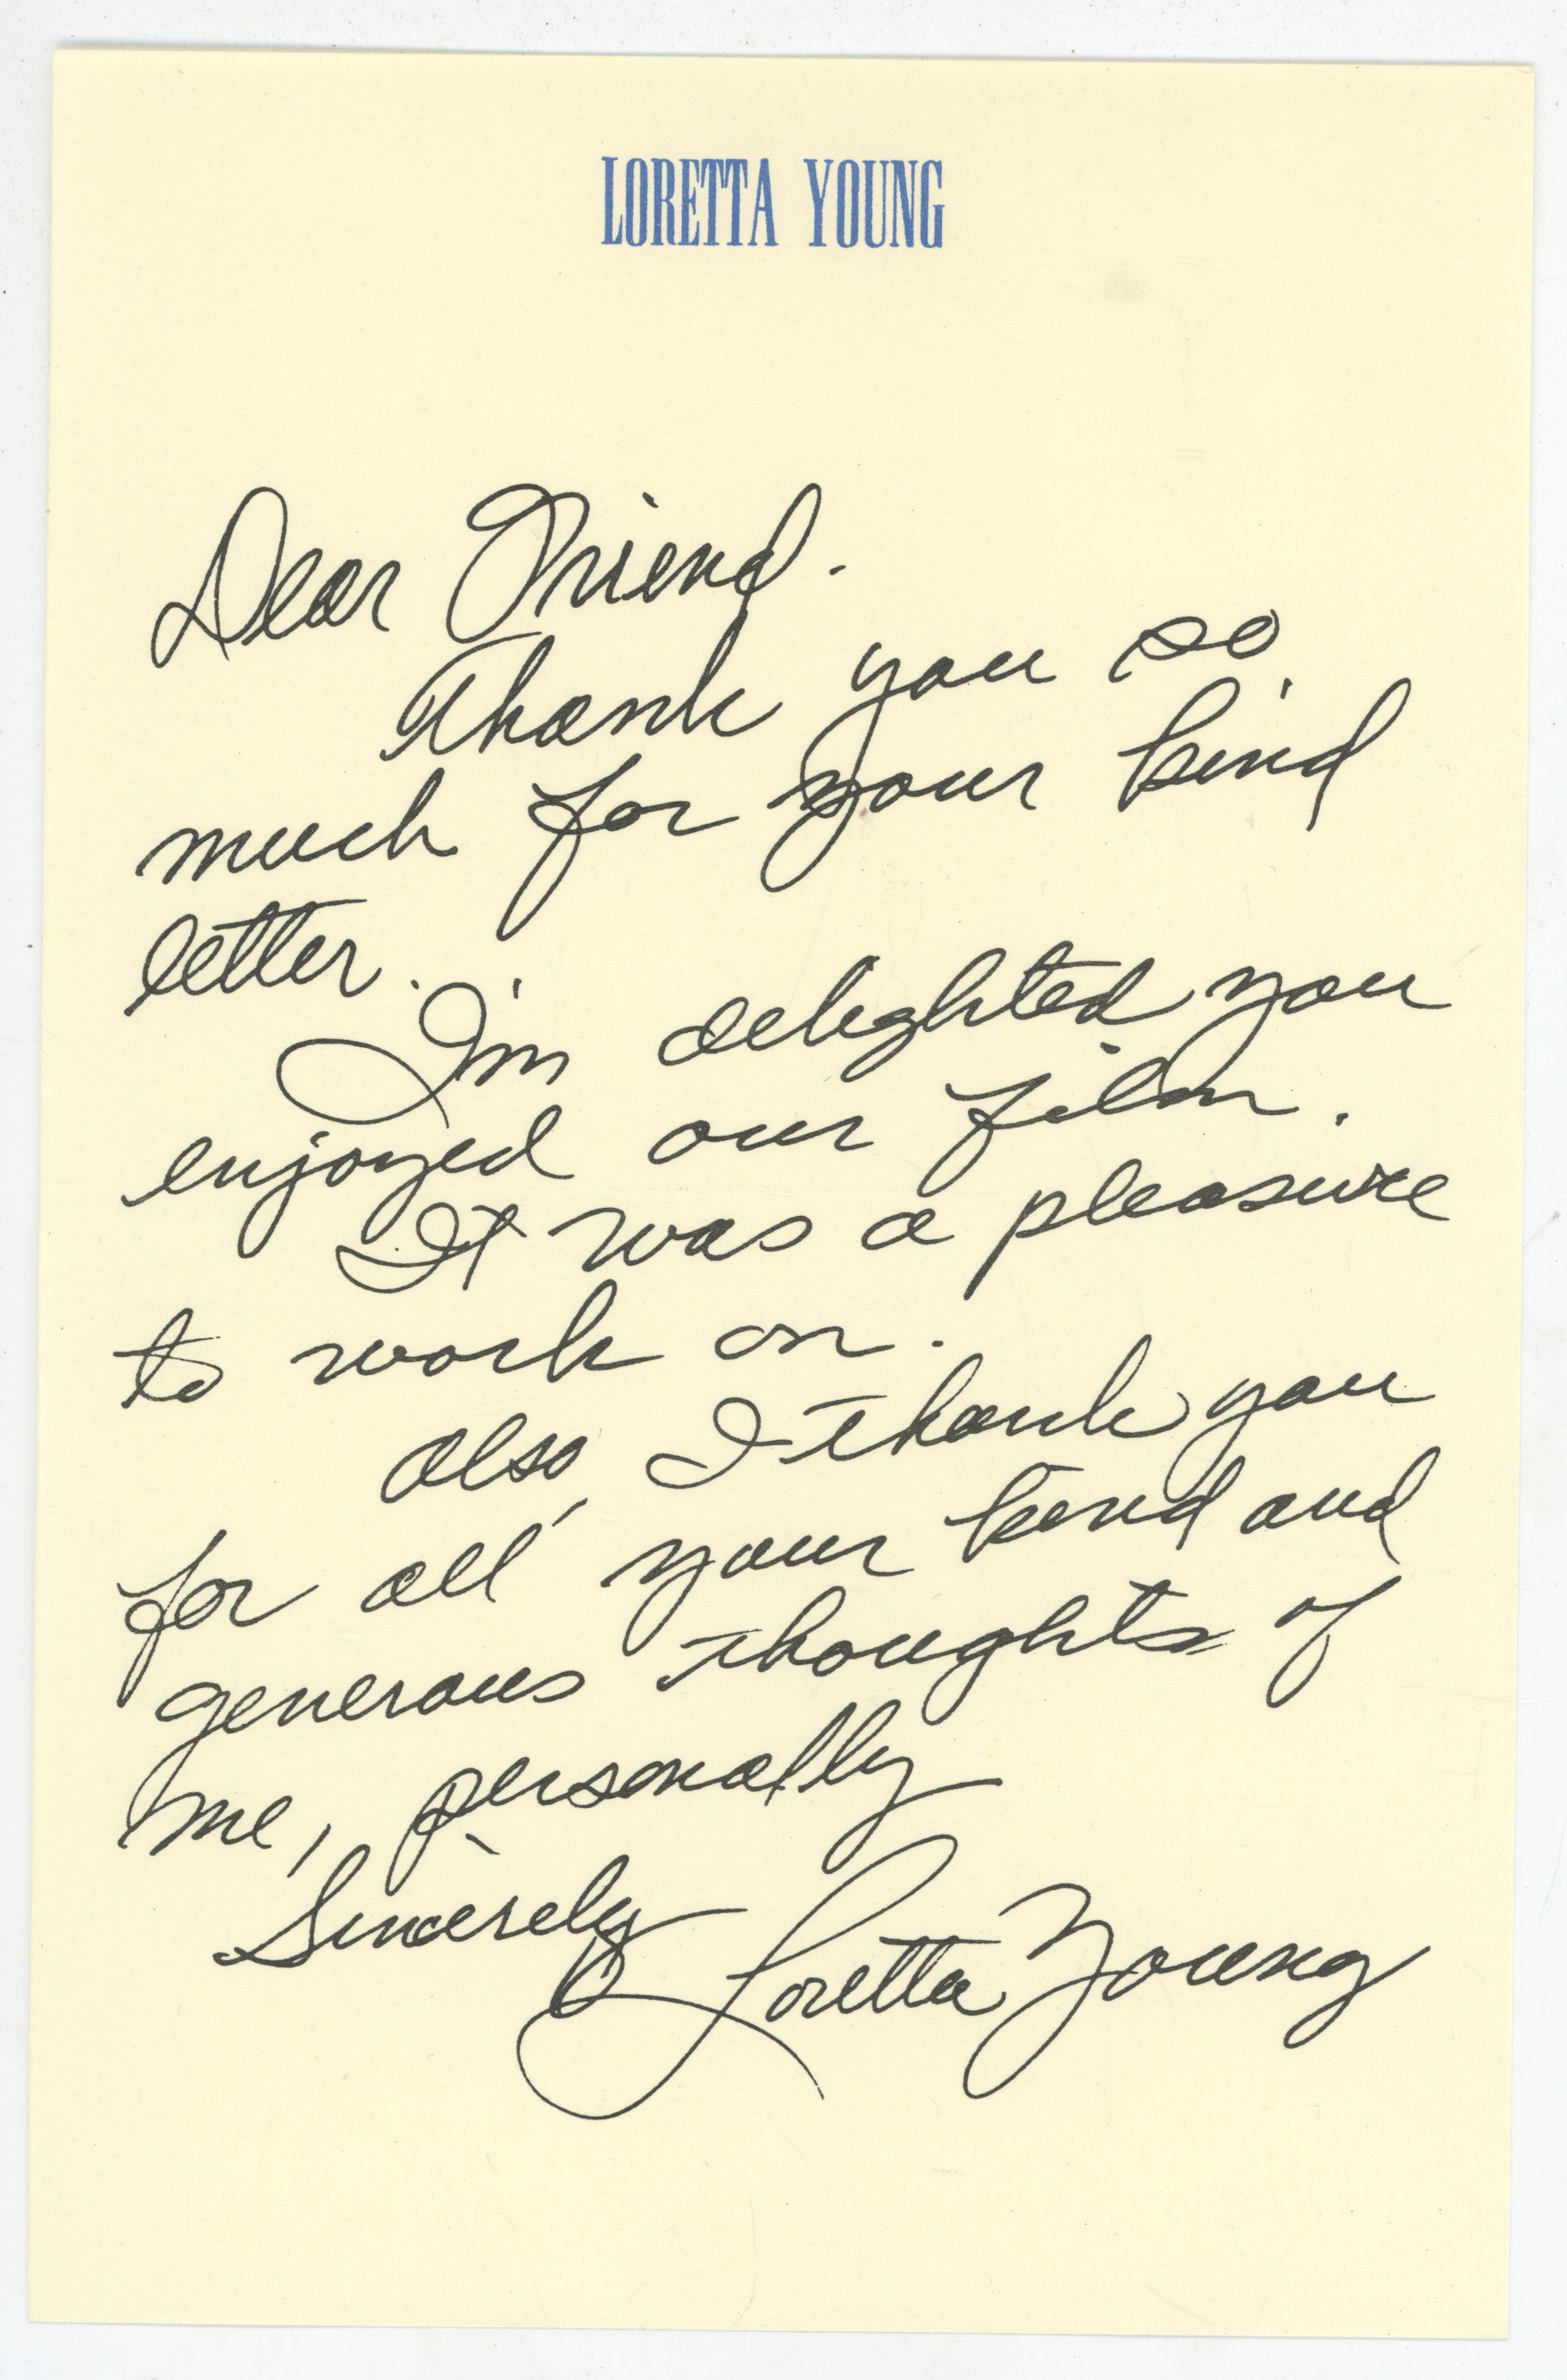 LORETTA YOUNG
Dear Friend.
Thank you so
much for your kind
letter.
I'm delighted you
enjoyed our film.
It was a pleasure
to work on.
Also, I thank you
for all your kind and
generous thoughts of
me, personally
Sincerely
Loretta Young